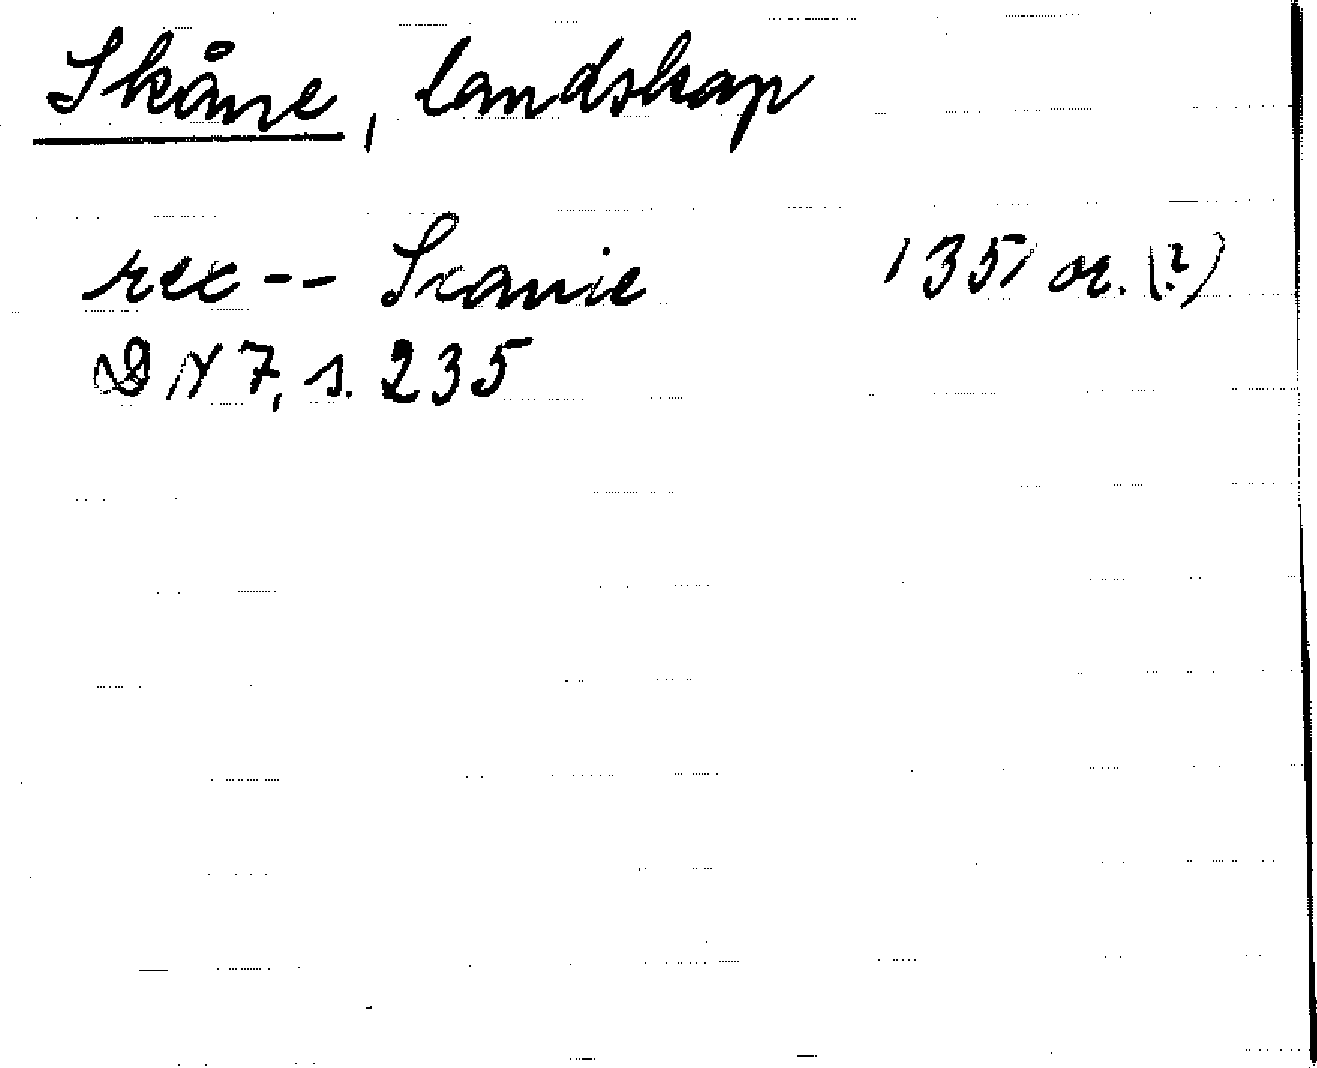 Skåne, landskap
rex -- Scanie 1351 or. (?)
DN 7, s. 235